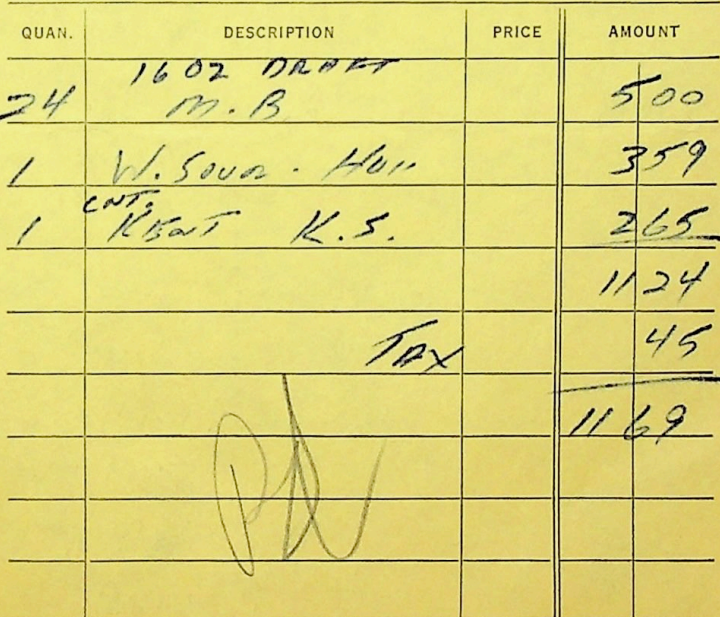 QUAN. DESCRIPTION PRICE AMOUNT
16 OZ DRAFT
24 M.B 5 00
1 W. Sour. 3 59
CNT.
1 Kent K.S. 2 65
11 24
TAX 45
11 69